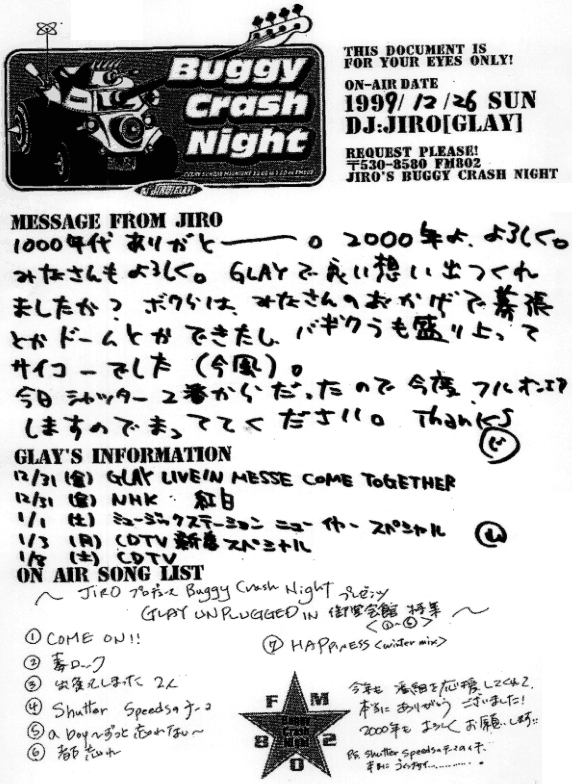 Buggy
Crash
Night
DJ JIRO[GLAY]
THIS DOCUMENT IS
FOR YOUR EYES ONLY!
ON-AIR DATE
1999/12/26 SUN
DJ:JIRO[GLAY]
REQUEST PLEASE!
〒530-8580 FM802
JIRO'S BUGGY CRASH NIGHT
MESSAGE FROM JIRO
1000年代 ありがとー。 2000年よ、よろしく。
みなさんもよろしく。 GLAYで良い想い出つくれ
ましたか? ボクらは、みなさんのおかげで幕張
とかドームとかできたし、バギクラも盛り上って
サイコーでした(今風)。
今日シャッター2番からだったので今度、フルオンエア
しますのでまっててください。 Thanks
GLAY'S INFORMATION
12/31 (金) GLAY LIVE IN MESSE COME TOGETHER
12/31 (金) NHK 紅白
1/1 (土) ミュージックステーション ニューイヤースペシャル
1/3 (月) CDTV 新春スペシャル
1/8 (土) CDTV
ON AIR SONG LIST
〜 JIRO プロデュース Buggy Crash Night プレゼンツ
GLAY UNPLUGGED IN 御堂会館 特集 〜
<①〜⑥>
① COME ON!!
② 毒ロック
③ 出逢ってしまった2人
④ Shutter Speedsのテーマ
⑤ a boy〜ずっと忘れない〜
⑥ 都忘れ
⑦ HAPPINESS <winter mix>
FM
802
Buggy
Crash
Night
今年も 番組を応援してくれて、
本当にありがとう ございました!
2000年も よろしく お願いします!!
P.S. Shutter Speedsのテーマのイキ、